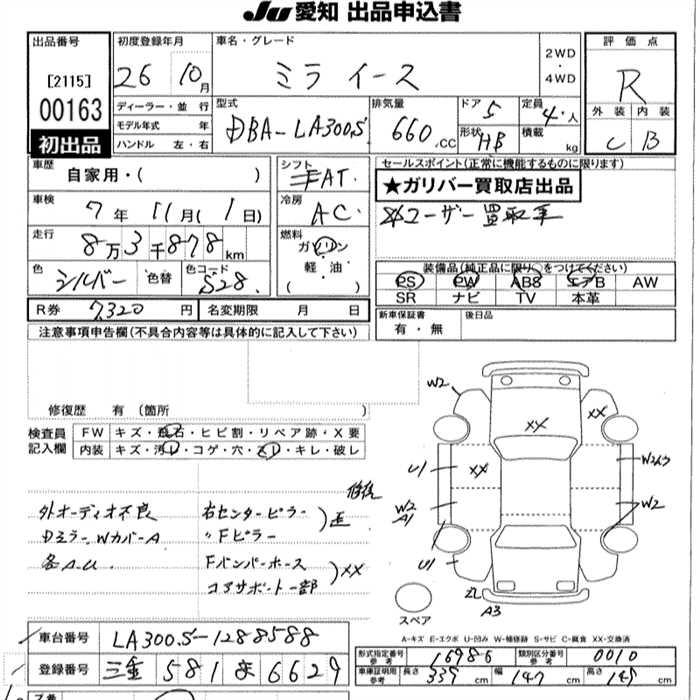 JU 愛知 出品申込書
出品番号
[2115]
00163
初出品
初度登録年月
26 10月
ディーラー・並 行
モデル年式 年
ハンドル 左・右
車名・グレード
ミラ イース
2WD
・
4WD
型式
DBA-LA300S
排気量
660.cc
ドア
5
形状
HB
定員
4・人
積載
kg
評 価 点
R
外 装 内 装
C B
車歴
自家用・( )
車検
7年 11月(1日)
走行
8万3千878km
色
シルバー
色替
色コード
S28.
シフト
FAT.
冷房
AC
燃料
ガソリン
軽・油
( )
セールスポイント(正常に機能するものに限ります)
★ガリバー買取店出品
ユーザー買取車
装備品(純正品に限り○をつけてください)
PS PW ABS エアB AW
SR ナビ TV 本革
新車保証書
有・無
後日品
R券 7,320 円
名変期限 月 日
注意事項申告欄(不具合内容等は具体的に記入して下さい)
修復歴 有 (箇所 )
検査員
記入欄
FW キズ・飛石・ヒビ割・リペア跡・X要
内装 キズ・汚レ・コゲ・穴・スレ・キレ・破レ
外オーディオ不良
DミラーWカバーA
各A.U.
修復
右センターピラー
〃Fピラー
)歪
Fバンパーホース
コアサポート一部
)XX
W2
XX
XX
U1
XX
W2
A1
W2
U1
A3
スペア
A-キズ E-エクボ U-凹み W-補修跡 S-サビ C-腐食 XX-交換済
車台番号 LA300S-1288588
登録番号 三重 581 ま 6629
形式指定番号
参考
16986
類別区分番号
参考
0010
車庫証明用
参考
長さ 339 cm
幅 147 cm
高さ 149 cm